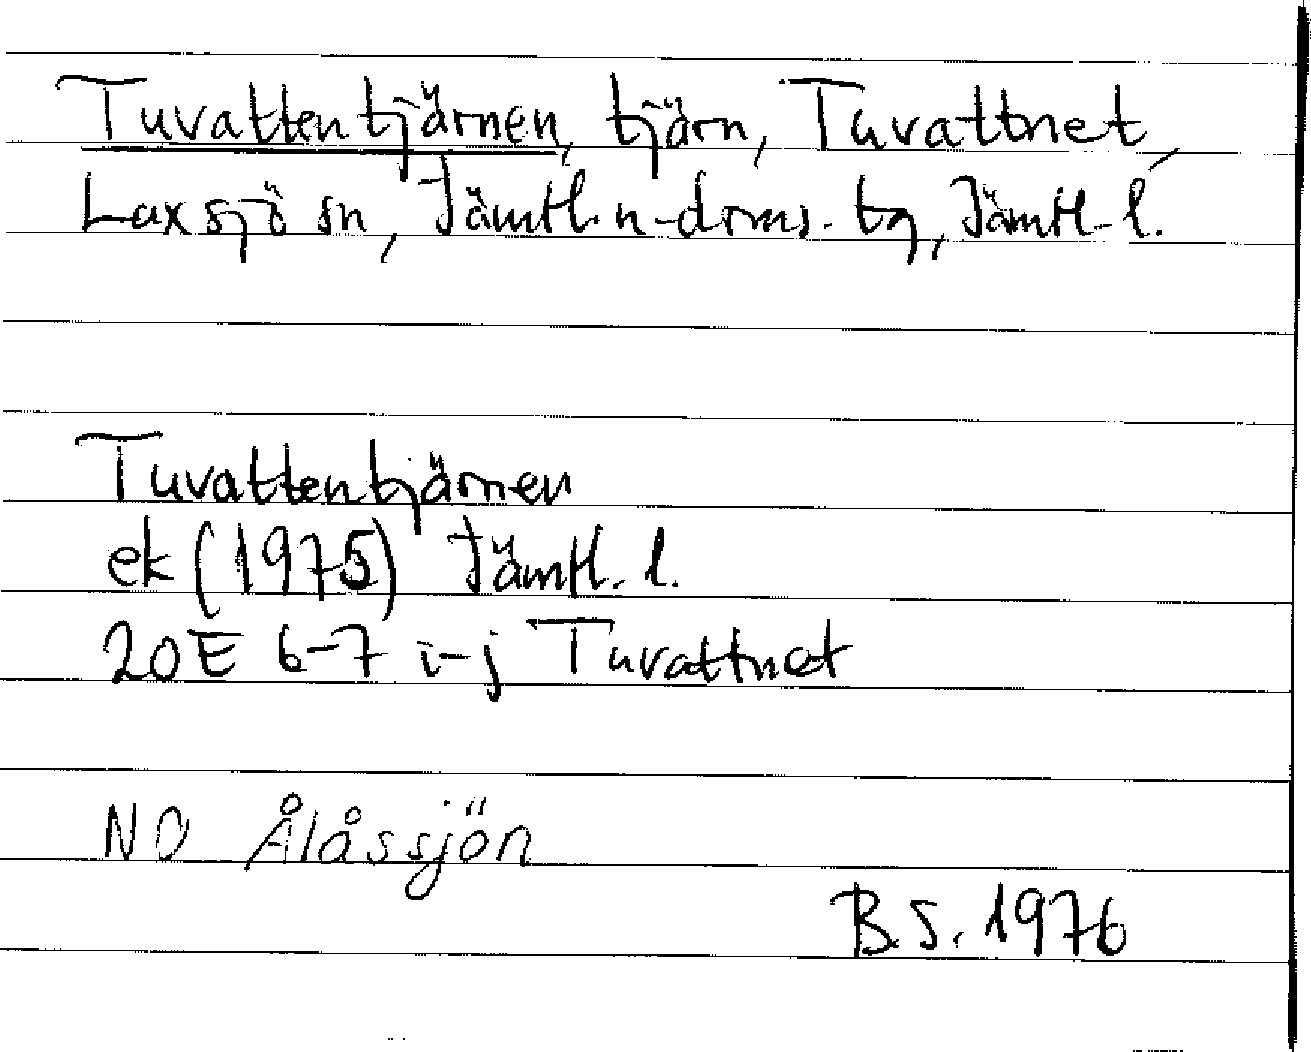 Tuvattentjärnen, tjärn, Tuvattnet,
Laxsjö sn, Jämtl. n-doms. tg, Jämtl. l.
Tuvattentjärnen
ek (1975) Jämtl. l.
20E 6-7 i-j Tuvattnet
NO Ålåssjön
B.S. 1976